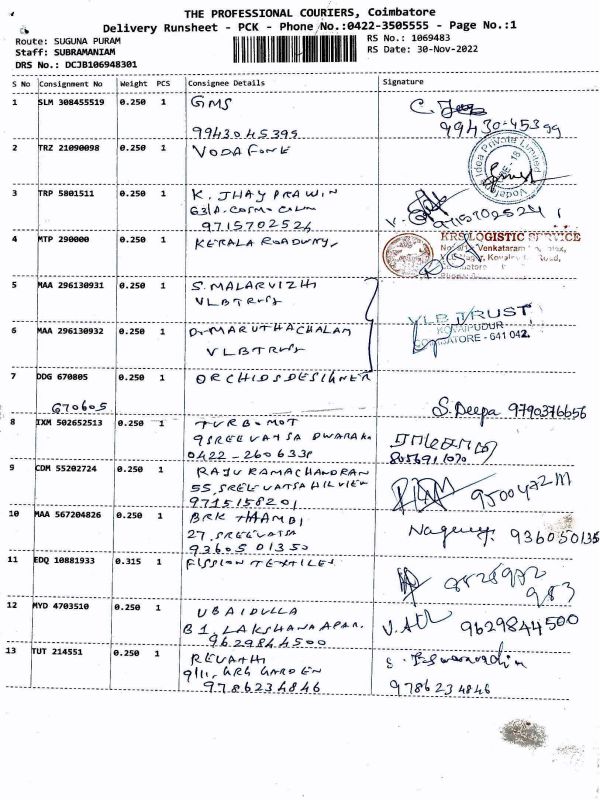 THE PROFESSIONAL COURIERS, Coimbatore
Delivery Runsheet - PCK - Phone No.:0422-3505555 - Page No.:1
Route: SUGUNA PURAM
RS No.: 1069483
Staff: SUBRAMANIAM
RS Date: 30-Nov-2022
DRS No.: DCJB106948301
S No Consignment No Weight PCS Consignee Details Signature
1 SLM 308455519 0.250 1 GMS
9943045395
2 TRZ 21090098 0.250 1 VODAFONE
Idea Private Limited
3 TRP 5801511 0.250 1 K. JHAY PRAWIN
9715702524
4 MTP 290000 0.250 1 KERALA ROADWAY
KRS LOGISTIC SERVICE
5 MAA 296130931 0.250 1 S. MALARVIZHI
VLB TRUST
VLB TRUST
KOVAIPUDUR
COIMBATORE - 641 042.
6 MAA 296130932 0.250 1 Dr MARUTHACHALAM
VLB TRUST
7 DDG 670805 0.250 1 ORCHIDS DESIGNER
670605
S. Deepa 9790376656
8 IXM 502652513 0.250 1 TURBOMOT
9 SREEVATSA DWARAKA
0422-260633
9 CDM 55202724 0.250 1 RAJU RAMACHANDRAN
55, SREEVATSA HILVIEW
9715158201
10 MAA 567204826 0.250 1 BRK THAAMBI
27, SREEVATSA
9360501350
936050135
11 EDQ 10881933 0.315 1 FUSSION TEXTILES
12 MYD 4703510 0.250 1 UBAIDULLA
B1, LAKSHANA APAR.
9629844500
9629844500
13 TUT 214551 0.250 1 REVATHI
9/11, GRG GARDEN
9786234846
9786234846